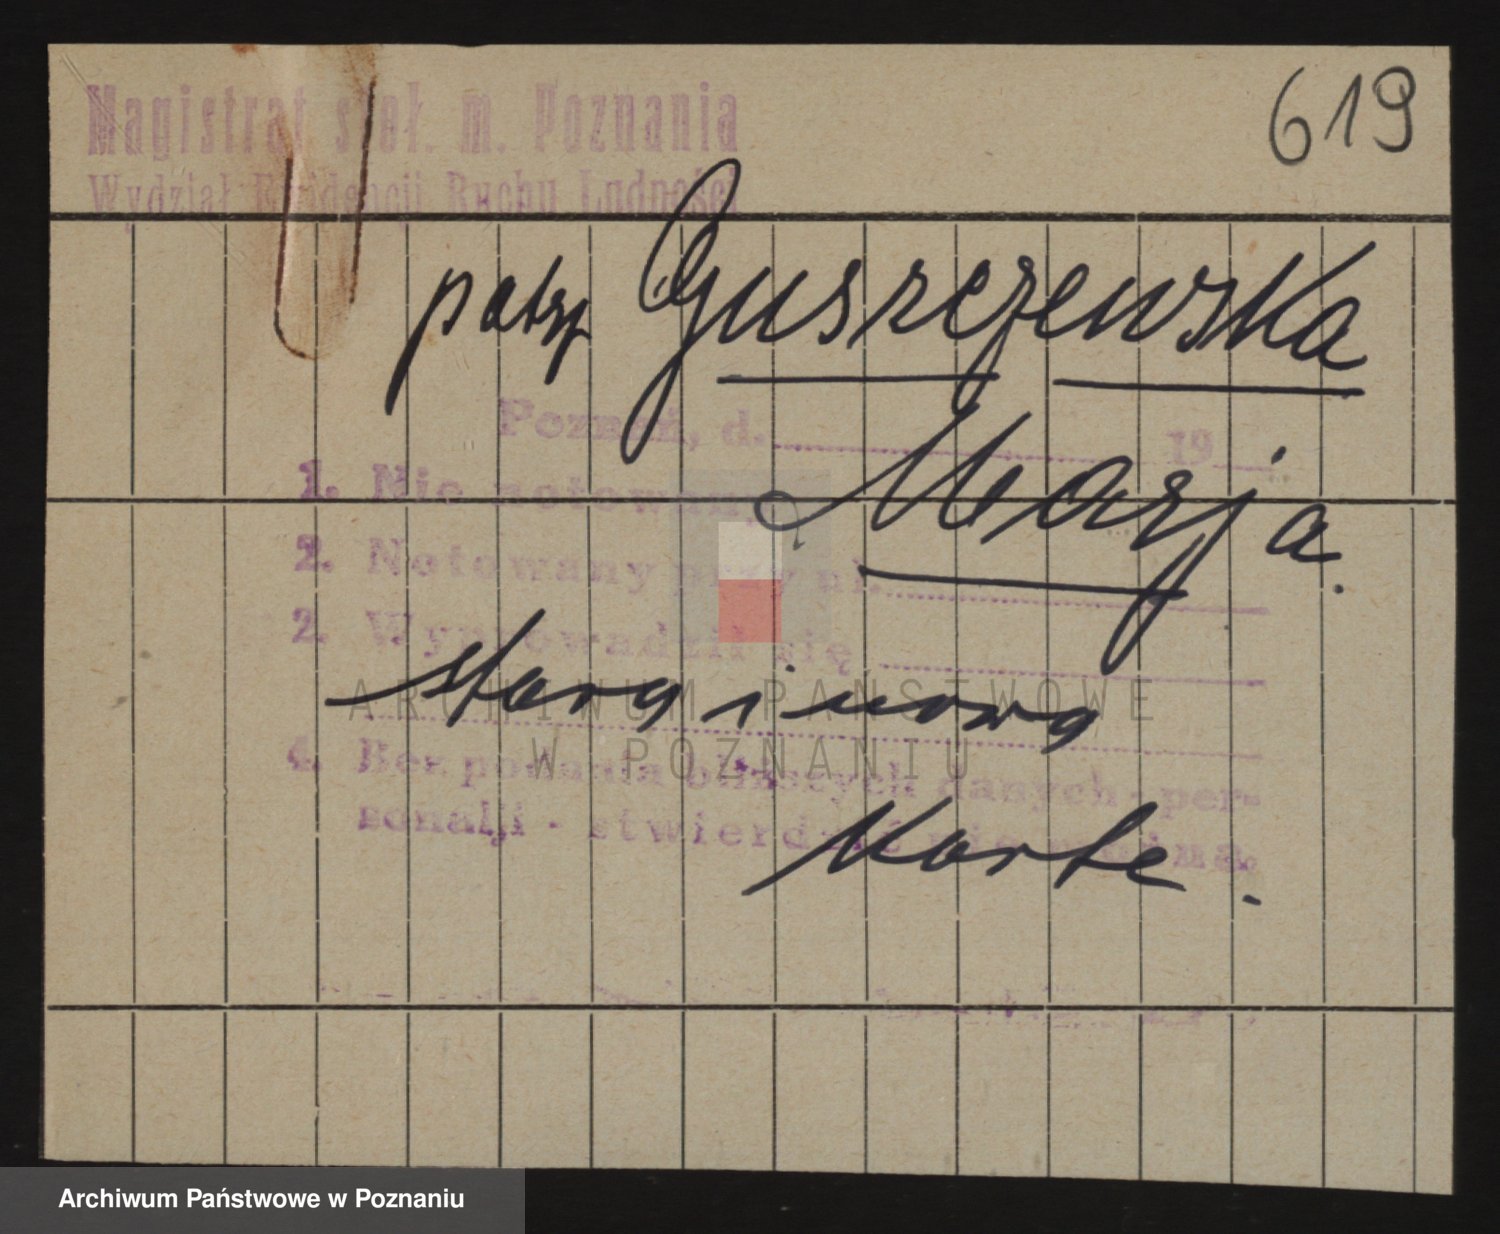 619
Magistrat stoł. m. Poznania
Wydział Ewidencji Ruchu Ludności
patrz Guszczewska
Poznań, d. 19
Marja.
1. Nie notowany
2. Notowany przy pl.
2. Wyprowadził się
starą i nową
ARCHIWUM PAŃSTWOWE
W POZNANIU
4. Bez podania bliższych danych per-
sonalji - stwierdzić nie można.
Kartę.
Archiwum Państwowe w Poznaniu